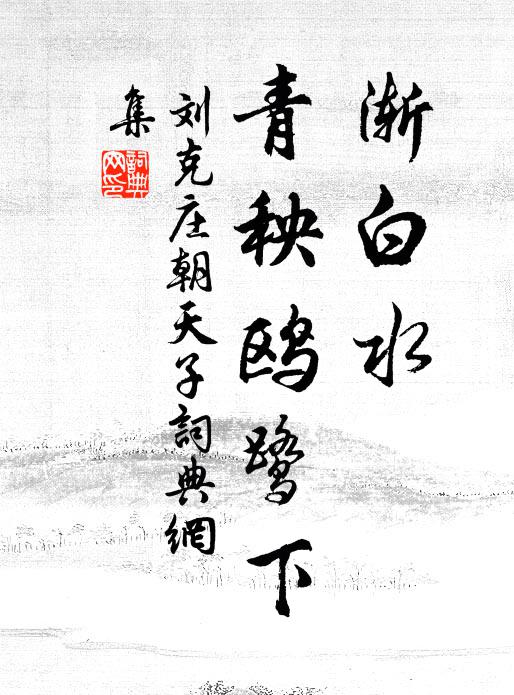 渐白水
青秧鸥鹭下
刘克庄朝天子詞典網
集
詞典
网印